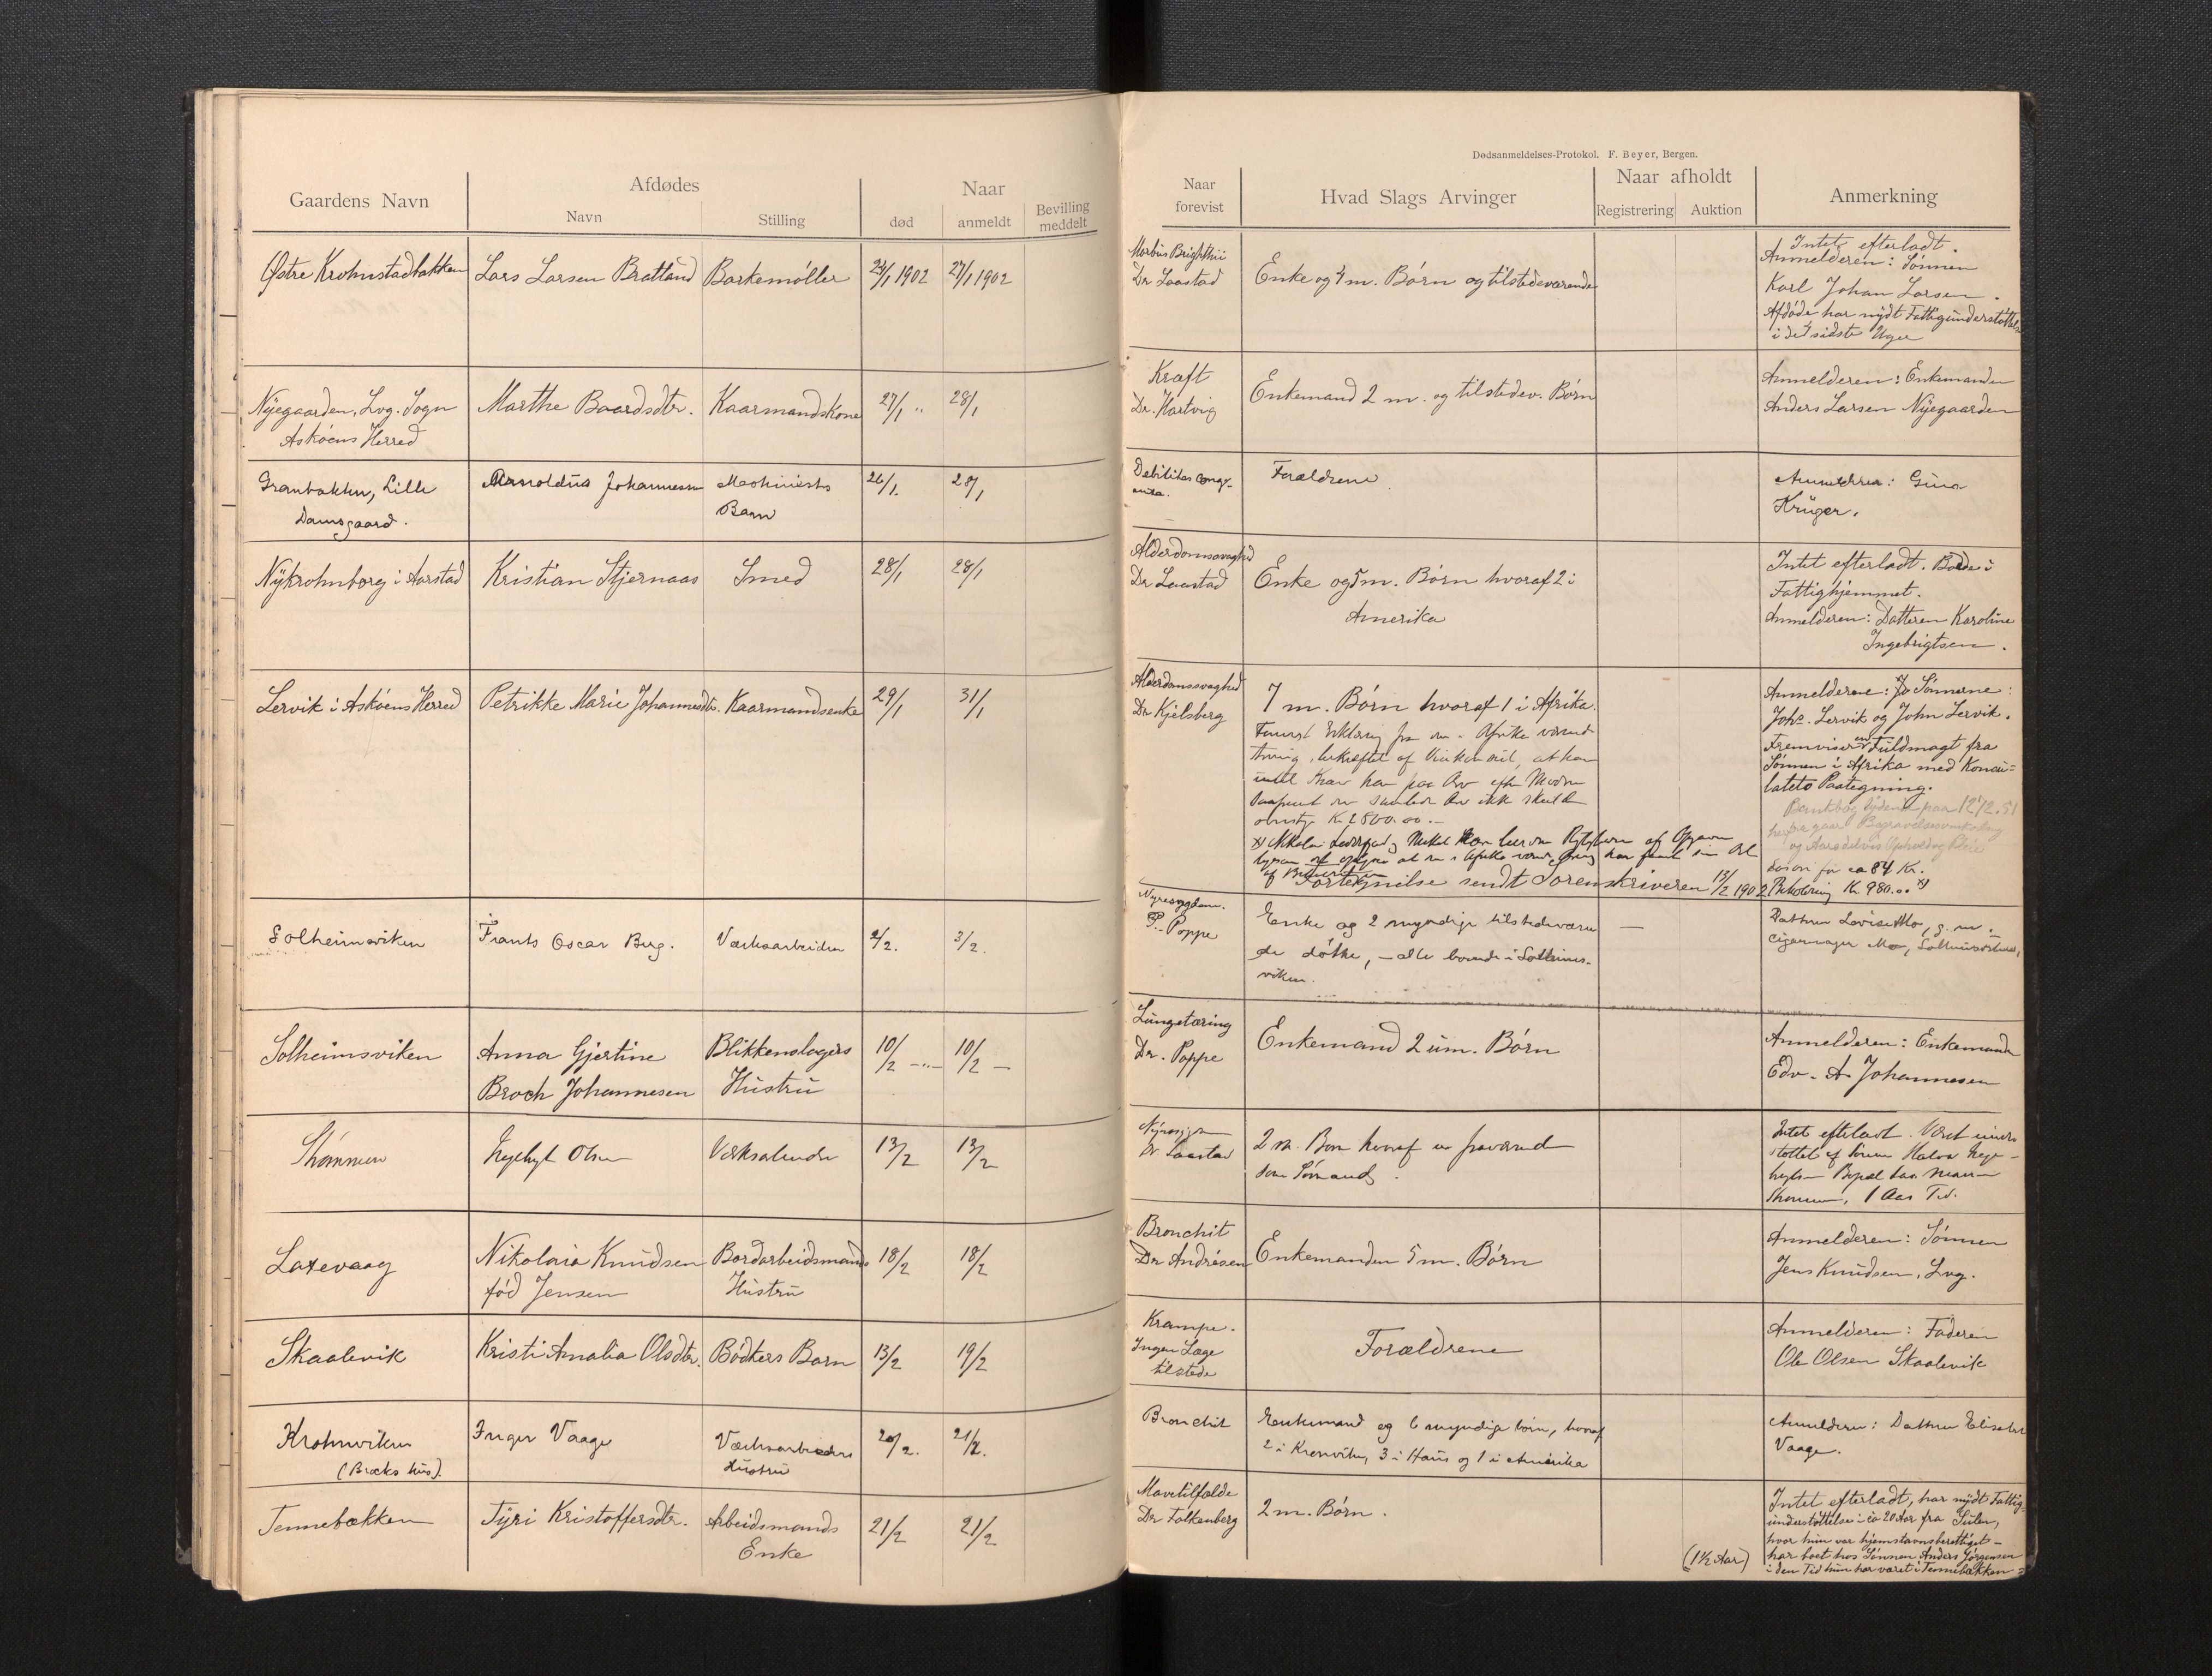 Gaardens Navn
Afdødes
Navn
Stilling
Naar
død
anmeldt
Bevilling
meddelt
Østre Krohnstadbakken
Lars Larsen Brattland
Barkemøller
24/1 1902
27/1 1902
Nÿegaarden, Lvg. Sogn
Askøens Herred
Marthe Baardsdtr.
Kaarmandskone
27/1 "
28/1
Granbakken, Lille
Damsgaard.
Arnoldus Johannessen
Maskinists
Barn
26/1.
28/1
Nÿkrohnborg i Aarstad
Kristian Stjernaas
Smed
28/1
28/1
Lervik i Askøens Herred
Petrikke Marie Johannesdtr.
Kaarmandsenke
29/1
31/1
Solheimsviken
Frants Oscar Berg.
Værksarbeider
2/2.
3/2.
Solheimsviken
Anna Gjertine
Broch Johannesen
Blikkenslagers
Hustru
10/2 — " —
10/2 —
Olsen
13/2
13/2
Laxevaag
Nikolaia Knudsen
fød Jensen
Bordarbeidsmands
Hustru
18/2
18/2
Skaalevik
Kristi Amalia Olsdtr.
Bødkers Barn
13/2
19/2
Krohnviken
(Brocks hus).
Inger Vaage
Værksarbeiders
Hustru
20/2.
21/2.
Tennebækken
Tyri Kristoffersdtr.
Arbeidsmands
Enke
21/2
21/2
Dødsanmeldelses-Protokol. F. Beyer, Bergen.
Naar
forevist
Hvad Slags Arvinger
Naar afholdt
Registrering
Auktion
Anmerkning
Morbus Brighthii
Dr Laastad
Enke og 4 m. Børn og tilstedeværende
Intet efterladt.
Anmelderen: Sønnen
Karl Johan Larsen.
Afdøde har nydt Fattigunderstøttelse
i de sidste Uger
Kræft
Dr. Hartvig
Enkemand 2 m. og tilstedev. Børn
Anmelderen: Enkemanden
Anders Larsen Nÿegaarden
Debilitas conge-
nita.
Forældrene
Anmelderen: Gina
Krüger.
Alderdomssvaghed
Dr Laastad
Enke og 5 m. Børn hvoraf 2 i
Amerika
Intet efterladt. Boede i
Fattighjemmet.
Anmelderen: Datteren Karoline
Ingebrigtsen.
Alderdomssvaghed
Dr Kjelsberg
7 m. Børn hvoraf 1 i Afrika.
Arv ikke skulde
Kr 2800.00.—
Fortegnelse sendt Sorenskriveren 13/2 1902
Anmelderene: Sønnerne:
Johs. Lervik og John Lervik.
Fremviser en Fuldmagt fra
Sønnen i Afrika med Konsu=
latets Paategning.
Bankbog lydende paa 1212.51
ca 84 Kr.
Kr 980.00
Nyresygdom.
P. Poppe
Enke og 2 myndige tilstedeværen
de døtre, — alle boende i Solheims-
viken.
—
Datteren Lovise Mo, g. m.
Cigarmager Mo, Solheimsviken,
Lungetæring
Dr. Poppe
Enkemand 2 um. Børn
Anmelderen: Enkemanden
Edv. A. Johannesen
Dr Laastad
2 m. Børn hvoraf en
som Sømand.
Intet efterladt. Været under-
støttet af Sønnen
1 Aars Tid.
Bronchit
Dr Andrésen
Enkemanden 5 m. Børn
Anmelderen: Sønnen
Jens Knudsen, Lvg.
Krampe.
Ingen Læge
tilstede
Forældrene
Anmelderen: Faderen
Ole Olsen Skaalevik
Bronchit
Enkemand og 6 myndige børn, hvoraf
2 i Kronviken, 3 i Haus og 1 i Amerika
Anmelderen: Datteren Elisabet
Vaage.
Mavetilfælde
Dr Falkenberg
2 m. Børn.
(1½ Aar)
Intet efterladt, har nÿdt Fattig-
understøttelse i ca 20 Aar fra Sulen,
hvor hun var hjemstavnsberettiget —
har boet hos Sønnen Anders Jørgensen
i den Tid hun har været i Tennebækken =